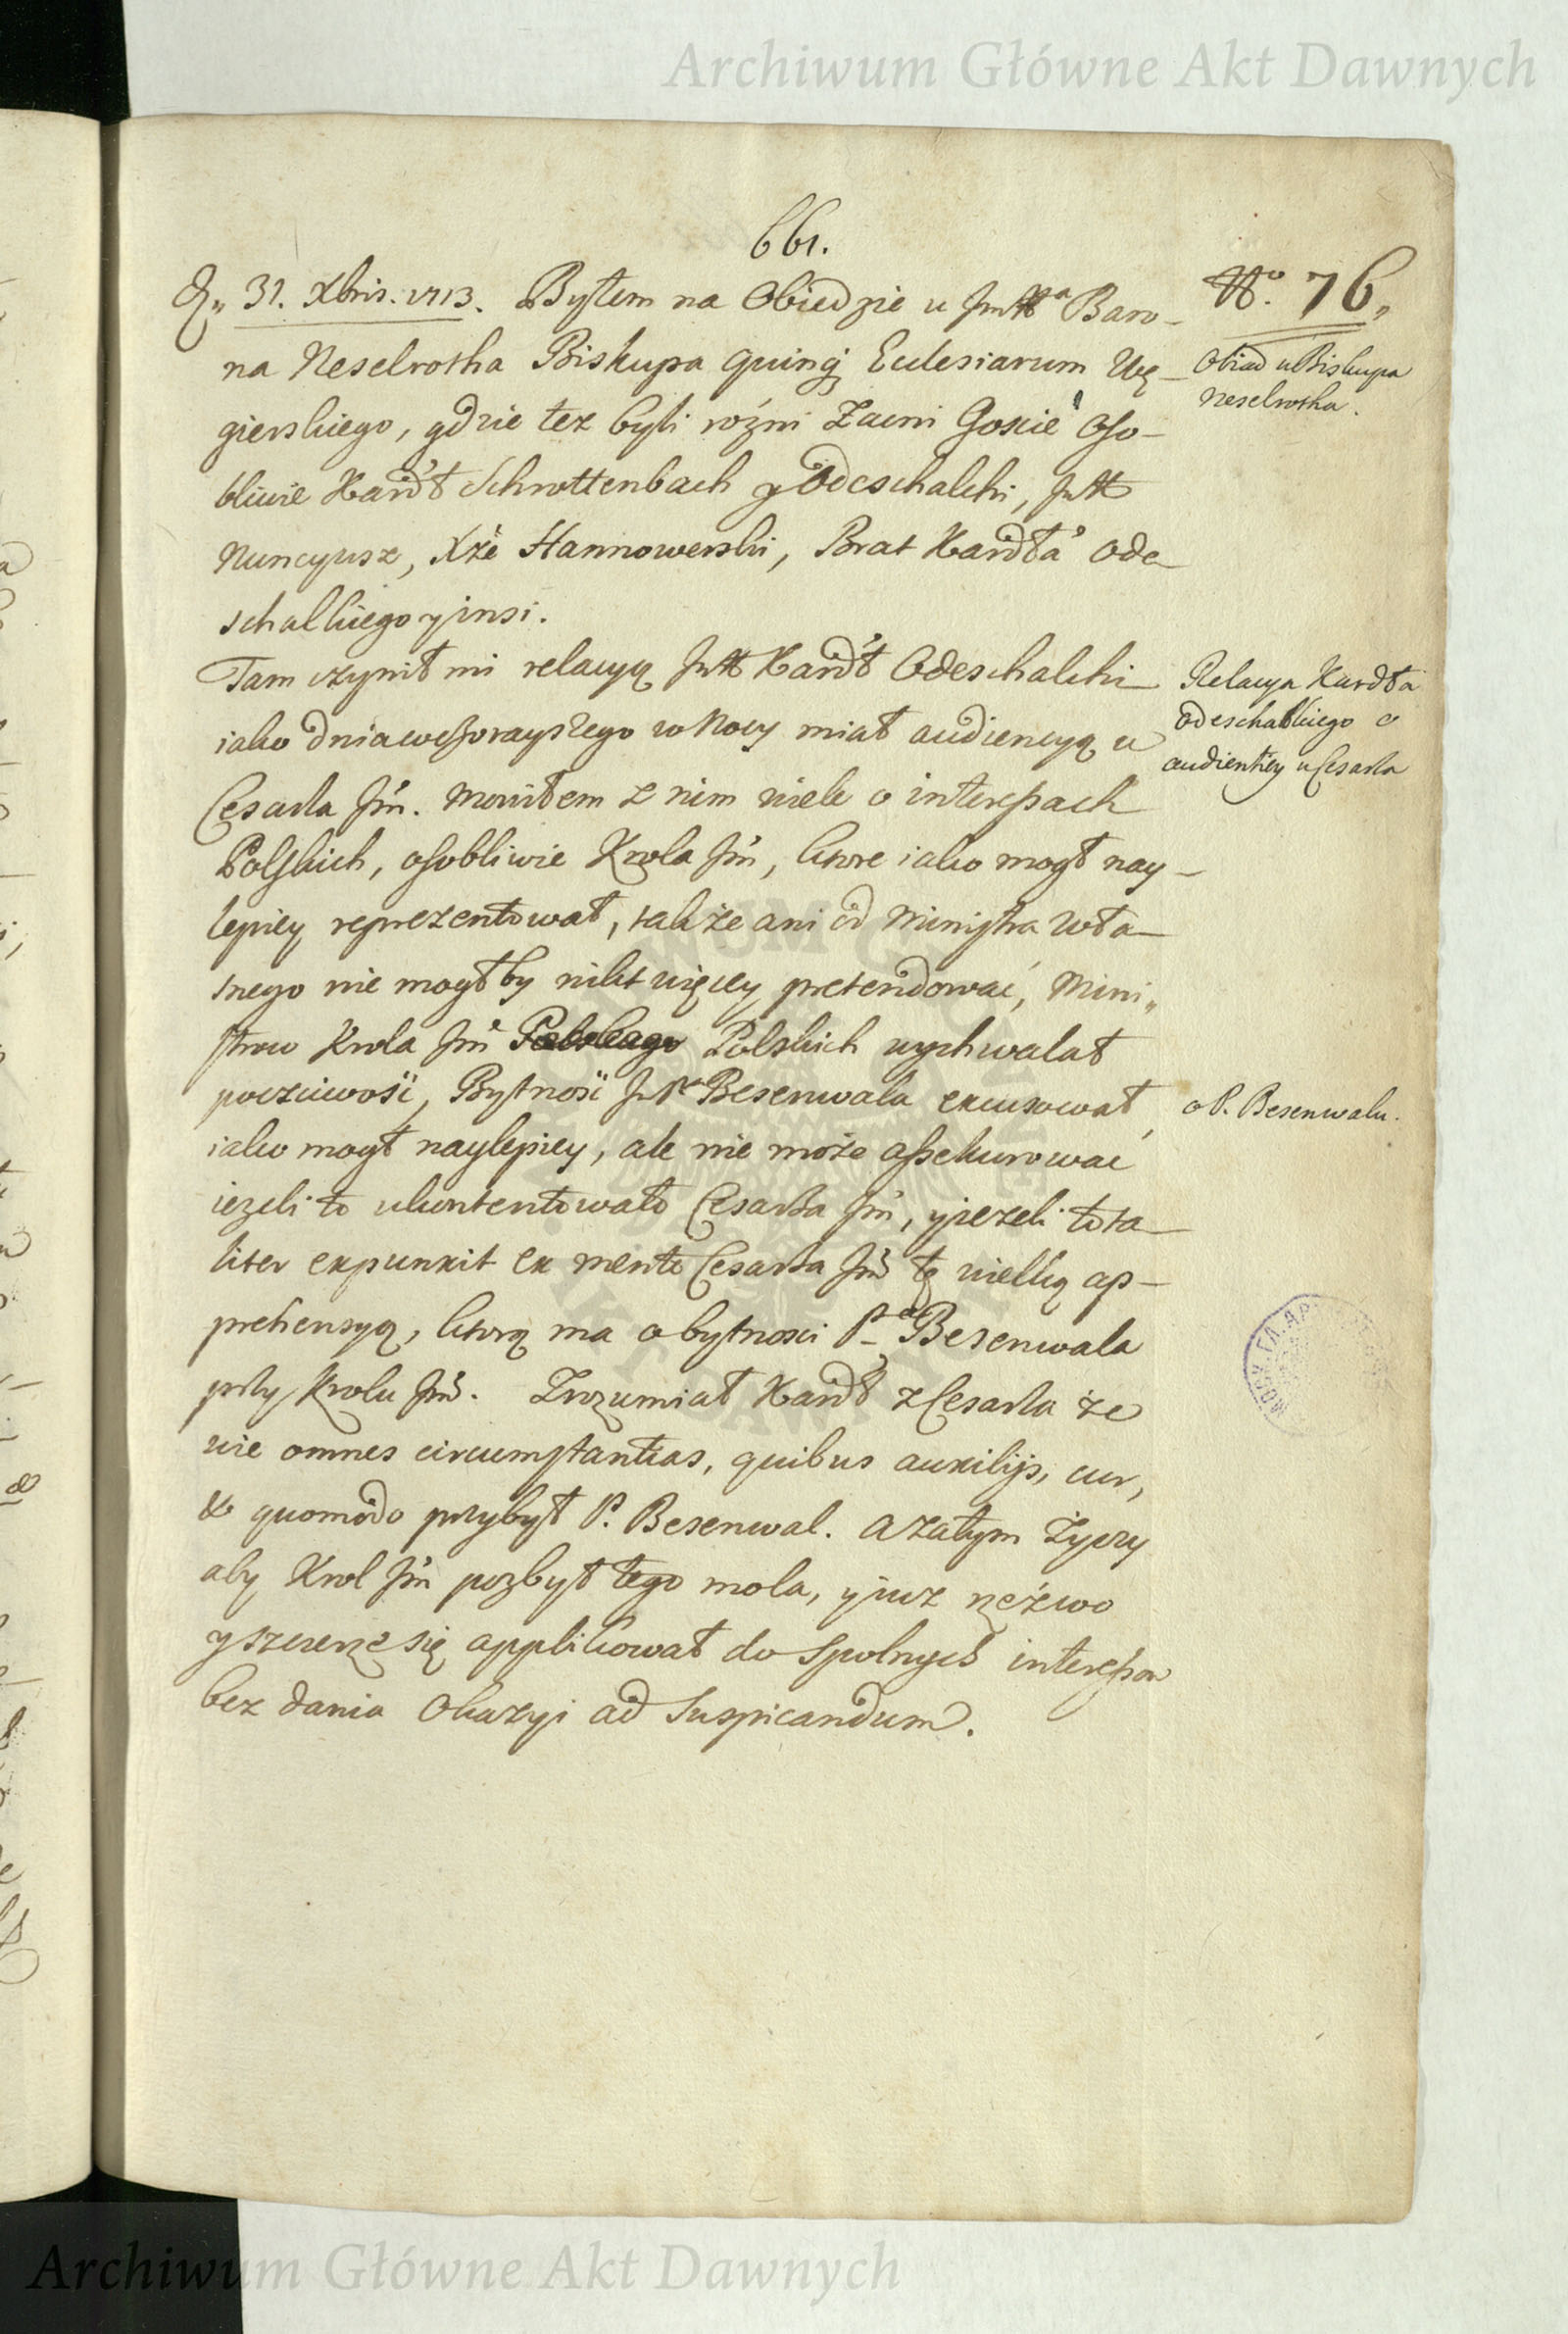 Archiwum Główne Akt Dawnych
661.
D. 31. Xbris. 1713. Byłem na Obiedzie u JmXa Baro-
na Neselrotha Biskupa Quinq Eclesiarum Wę-
gierskiego, gdzie też byli rożni Zacni Goscie oso-
bliwie Kardł Schrottenbach y Odeschalchi, JmX
Nuncyusz, Xże Hannowerski, Brat Kardła Ode-
schalkiego y insi.
Tam czynił mi relacyą JmX Kardł Odeschalchi
iako dnia wczorayszego w Nocy miał audiencyą u
Cesarza Jm. Mowiłem z nim wiele o interessach
Polskich, osobliwie Krola Jm, ktore iako mogł nay-
lepiey reprezentował, tak że ani od Ministra wła-
snego nie mogł by nikt więcey pretendować, Mini-
strow Krola Jm Polskich wychwalał
poczciwość, Bytność JmPa Besenwala excusował,
iako mogł naylepiey, ale nie może assekurować
iezeli to ukontentowało Cesarza Jm, y jezeli tota-
liter expunxit ex mente Cesarza Jm tę wielką ap-
prehensyą, ktorą ma o bytnosci Pa Besenwala
przy Krolu Jm. Zrozumiał Kardł z Cesarza że
wie omnes circumstantias, quibus auxilijs, cur,
& quomodo przybył P. Besenwal. A zatym życzy
aby Krol Jm pozbył tego mola, y juz rzeźwo
y szczerze się applikował do spolnych interessow
bez dania Okazyi ad Suspicandum.
No. 76.
Obiad u Biskupa
Neselrotha.
Relacya Kardła
Odeschalkiego o
audientiey u Cesarza
o P. Besenwalu.
Archiwum Główne Akt Dawnych